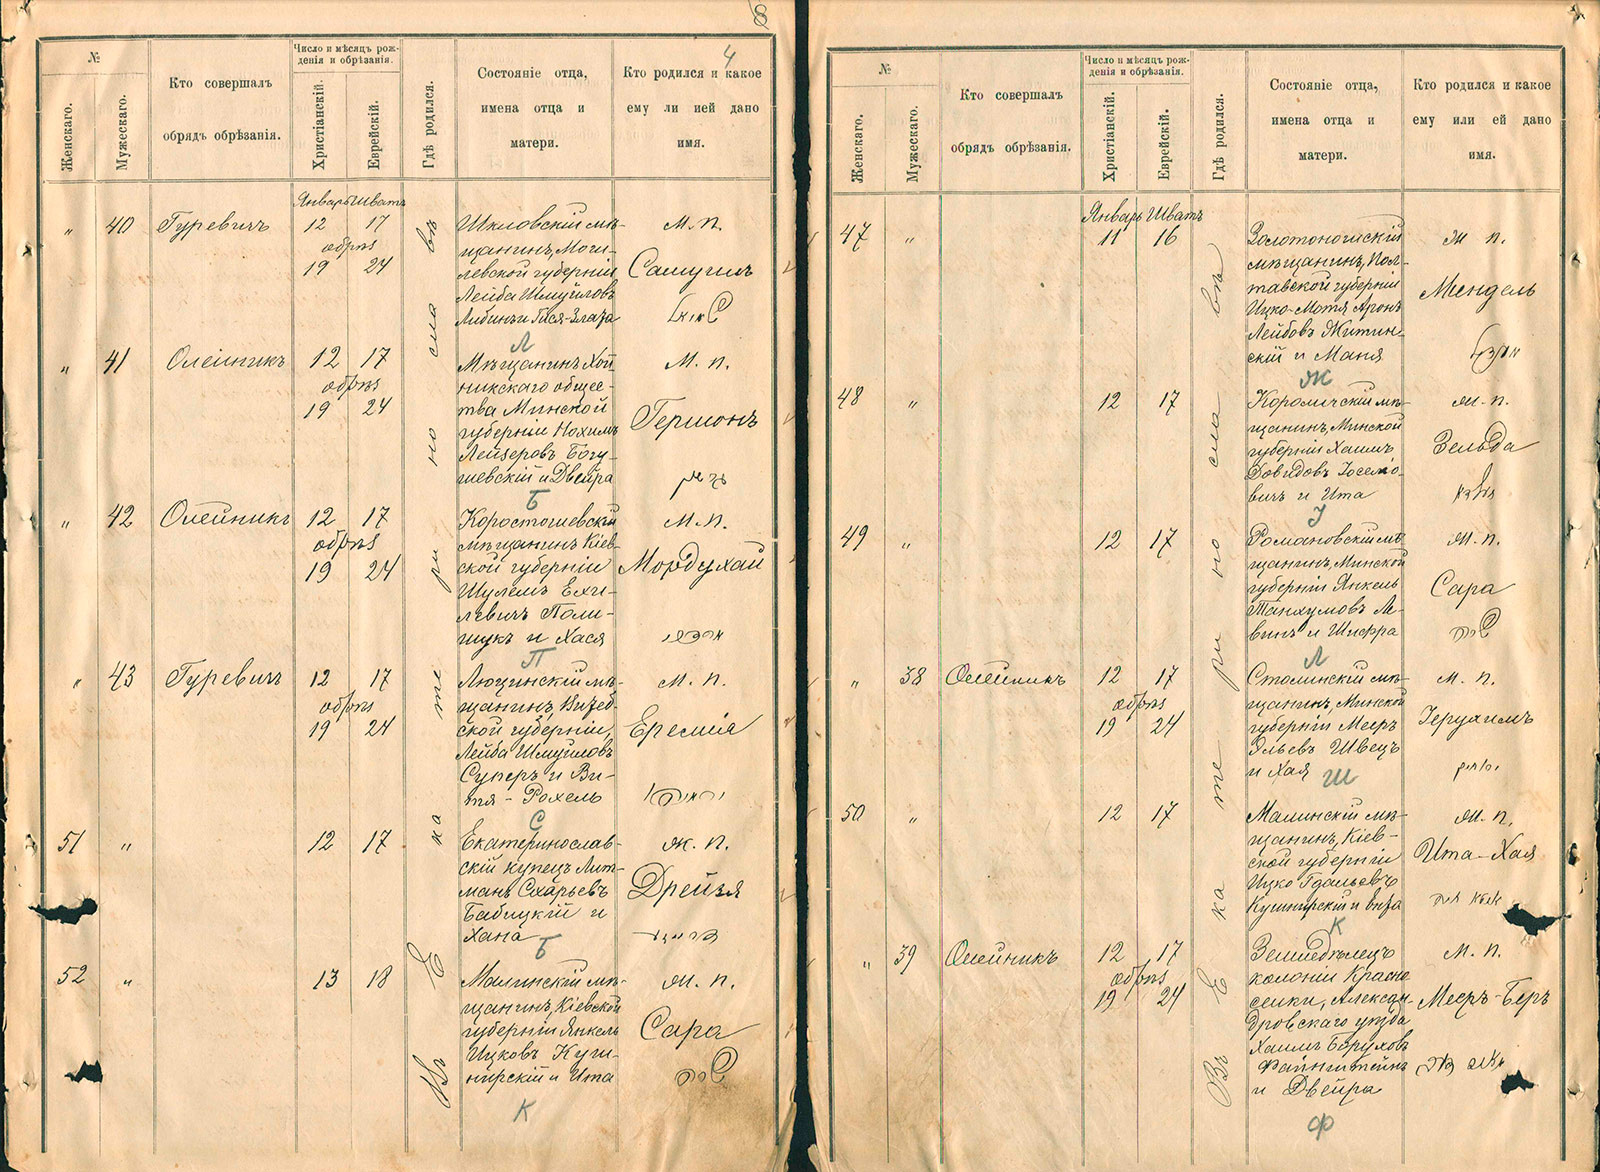 8
4
№
Женскаго.
Мужескаго.
Кто совершалъ
обрядъ обрѣзанія.
Число и мѣсяцъ рож-
денія и обрѣзанія.
Христіанскій.
Еврейскій.
Гдѣ родился.
Состояніе отца,
имена отца и
матери.
Кто родился и какое
ему ли ией дано
имя.
Январь Шватъ
Въ Екатеринославѣ
„ 40 Гуревичъ 12 17
обрѣз
19 24
Шкловскій мѣ-
щанинъ, Моги-
левской губерніи
Лейба Шмуйловъ
Либинъ и Гися-Злата
Л
М. п.
Самуилъ
„ 41 Олейникъ 12 17
обрѣз
19 24
Мѣщанинъ Хой-
никскаго общес-
тва Минской
губерніи Нохимъ
Лейзеровъ Богу-
шевскій и Двейра
Б
М. п.
Гершонъ
„ 42 Олейникъ 12 17
обрѣз
19 24
Коростышевскій
мѣщанинъ Кіев-
ской губерніи
Шулемъ Ехи-
левичъ Поли-
щукъ и Хася
П
М. п.
Мордухай
מרדכי
„ 43 Гуревичъ 12 17
обрѣз
19 24
Люцинскій мѣ-
щанинъ, Витеб-
ской губерніи,
Лейба Шмуйловъ
Суперъ и Ви-
тя-Рохель
С
М. п.
Еремія
51 „ 12 17
Екатеринослав-
скій купецъ Лит-
манъ Схарьевъ
Бабицкій и
Хана
Б
Ж. п.
Дрейзя
52 „ 13 18
Малинскій мѣ-
щанинъ, Кіевской
губерніи Янкель
Ицковъ Куш-
нирскій и Ита
К
Ж. п.
Сара
שרה
№
Женскаго.
Мужескаго.
Кто совершалъ
обрядъ обрѣзанія.
Число и мѣсяцъ рож-
денія и обрѣзанія.
Христіанскій.
Еврейскій.
Гдѣ родился.
Состояніе отца,
имена отца и
матери.
Кто родился и какое
ему или ей дано
имя.
Январь Шватъ
Въ Екатеринославѣ
47 „ 11 16
Золотоношскій
мѣщанинъ, Пол-
тавской губерніи
Ицко-Мотя Аронъ
Лейбовъ Житин-
скій и Маня
Ж
Ж п.
Мендель
48 „ 12 17
мѣ-
щанинъ, Минской
губерніи Хаимъ
Довидовъ Іосело-
вичъ и Ита
І
Ж. п.
Зельда
49 „ 12 17
Романовскій мѣ-
щанинъ, Минской
губерніи Янкель
Танхумовъ Ле-
винъ и Шифра
Л
Ж. п.
Сара
שרה
„ 38 Олейникъ 12 17
обрѣз
19 24
Столинскій мѣ-
щанинъ, Минской
губерніи Мееръ
Эльевъ Швецъ
и Хая
Ш
М. п.
Іерухимъ
50 „ 12 17
Малинскій мѣ-
щанинъ, Кіев-
ской губерніи
Ицко Гдальевъ
Кушнирскій и
К
Ж. п.
Ита-Хая
„ 39 Олейникъ 12 17
обрѣз
19 24
Земледѣлецъ
колоніи Красно-
селки, Алексан-
дровскаго уѣзда
Хаимъ Боруховъ
Файнштейнъ
и Двейра
Ф
М. п.
Мееръ-Беръ